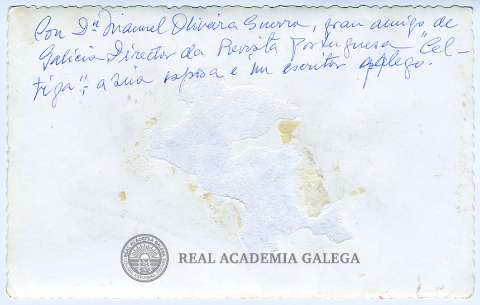 Con Dn Manuel Oliveira Guerra, gran amigo de
Galicia Director da Revista Portuguesa "Cél-
tiga"; a súa esposa e un escritor galego.
REAL ACADEMIA GALEGA